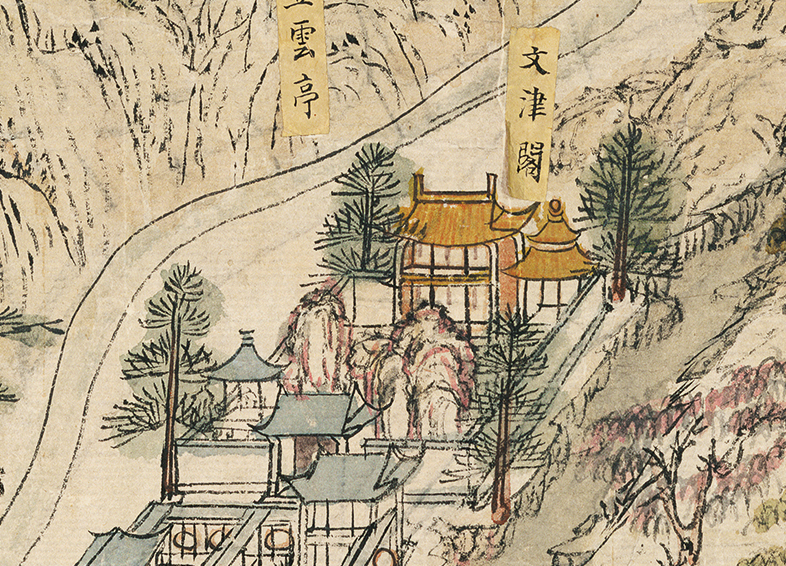 文津閣
雲亭